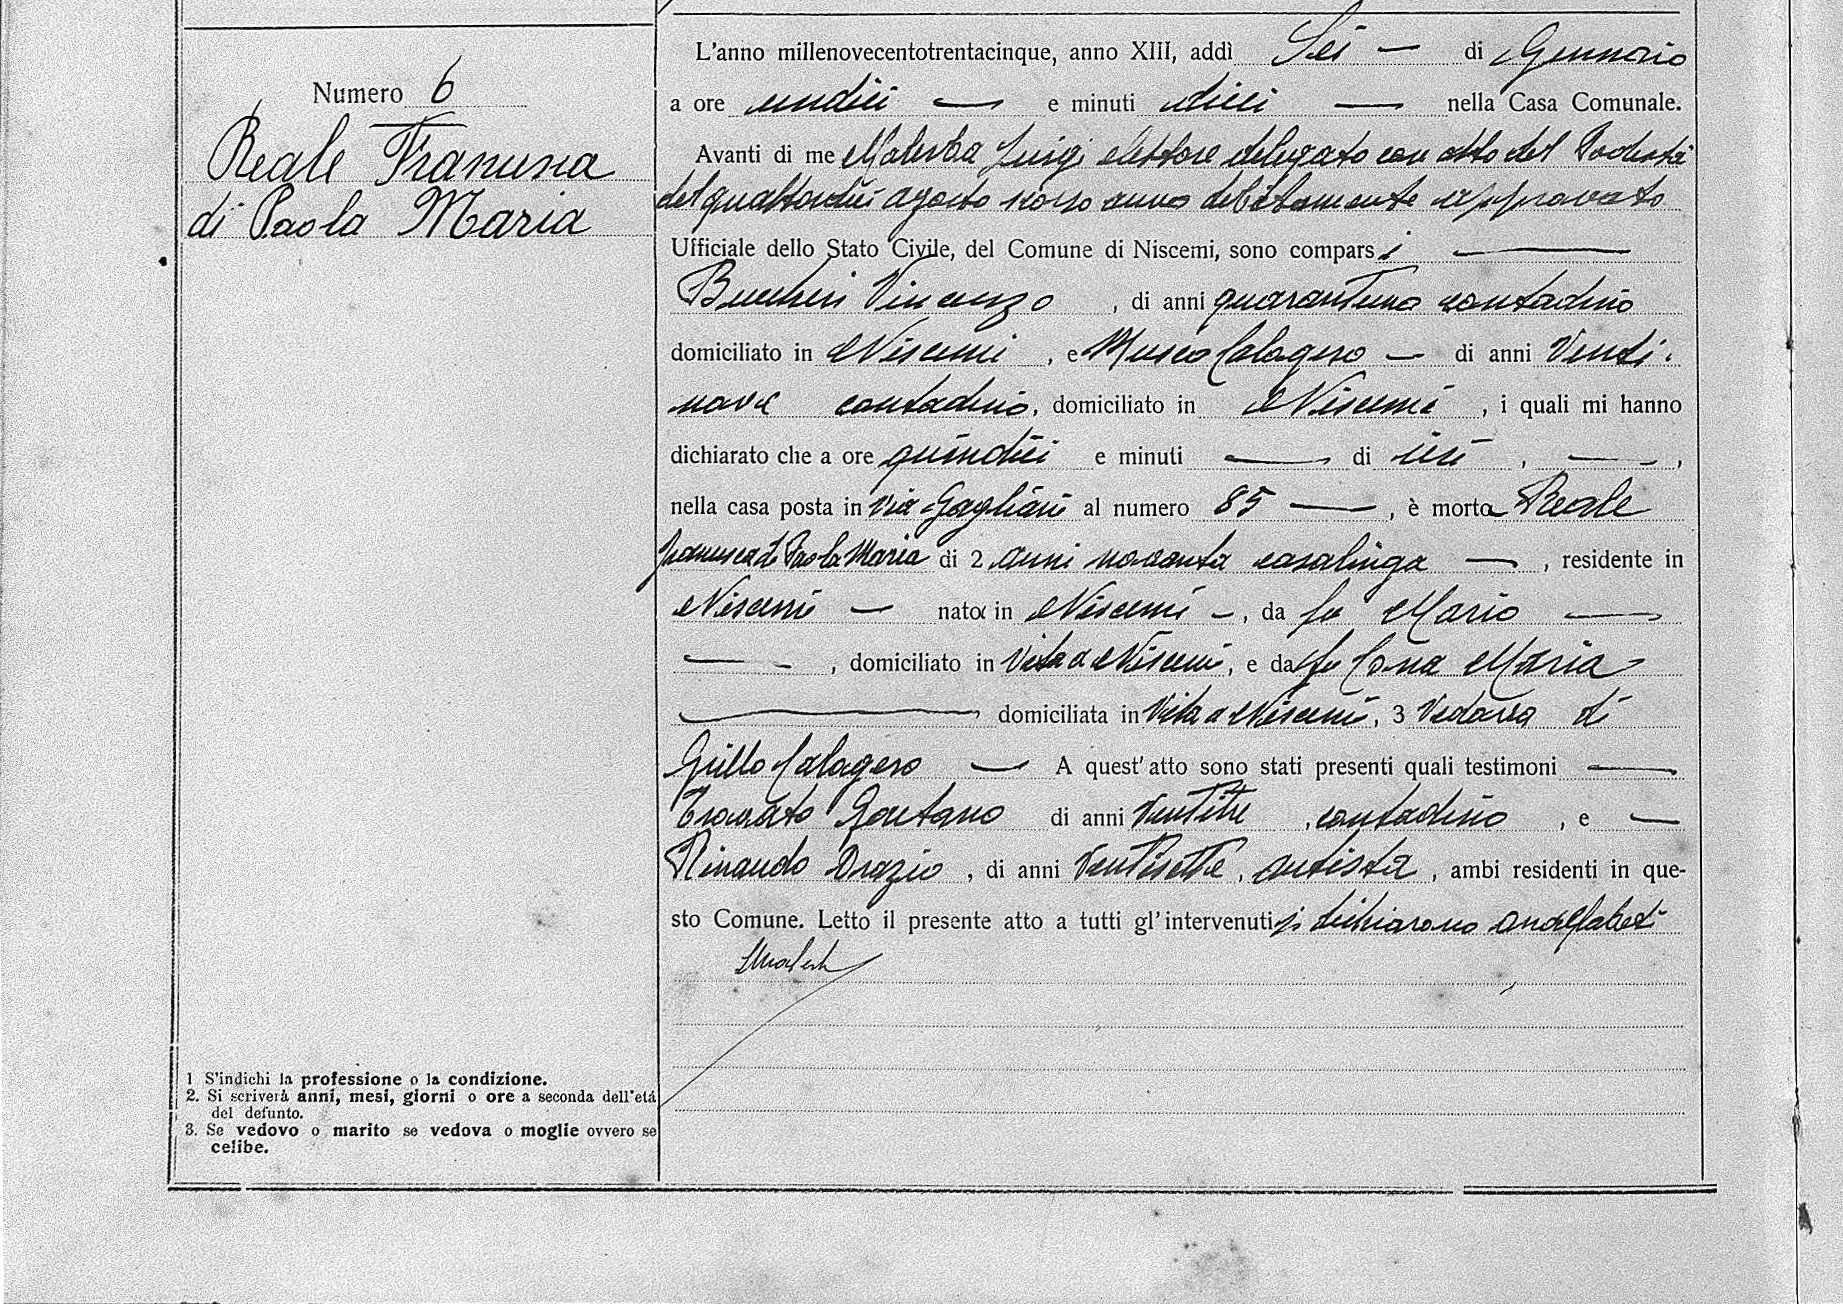 Numero 6
Reale Francesca
di Paola Maria
L'anno millenovecentotrentacinque, anno XIII, addì Sei — di Gennaio
a ore undici — e minuti dieci — nella Casa Comunale.
Avanti di me Malerba Luigi elettore delegato con atto del Podestà
del quattordici agosto scorso anno debitamente approvato
Ufficiale dello Stato Civile, del Comune di Niscemi, sono comparsi —
Buccheri Vincenzo, di anni quarantuno contadino
domiciliato in Niscemi, e Musco Calogero — di anni Venti-
nove contadino, domiciliato in Niscemi, i quali mi hanno
dichiarato che a ore quindici e minuti — di ieri, —,
nella casa posta in Via Gagliani al numero 85 —, è morta Reale
Francesca di Paola Maria di 2 anni novanta casalinga —, residente in
Niscemi — nata in Niscemi —, da fu Mario —
—, domiciliato in Vita a Niscemi, e da fu Maria
— domiciliata in Vita a Niscemi, 3 Vedova di
Grillo Calogero — A quest'atto sono stati presenti quali testimoni —
Trovato Gaetano di anni Ventitre, contadino, e —
Rinaudo Orazio, di anni Ventisette, autista, ambi residenti in que-
sto Comune. Letto il presente atto a tutti gl'intervenuti si dichiarono analfabeti
LMalerba
1 S'indichi la professione o la condizione.
2. Si scriverà anni, mesi, giorni o ore a seconda dell'età
del defunto.
3. Se vedovo o marito se vedova o moglie ovvero se
celibe.